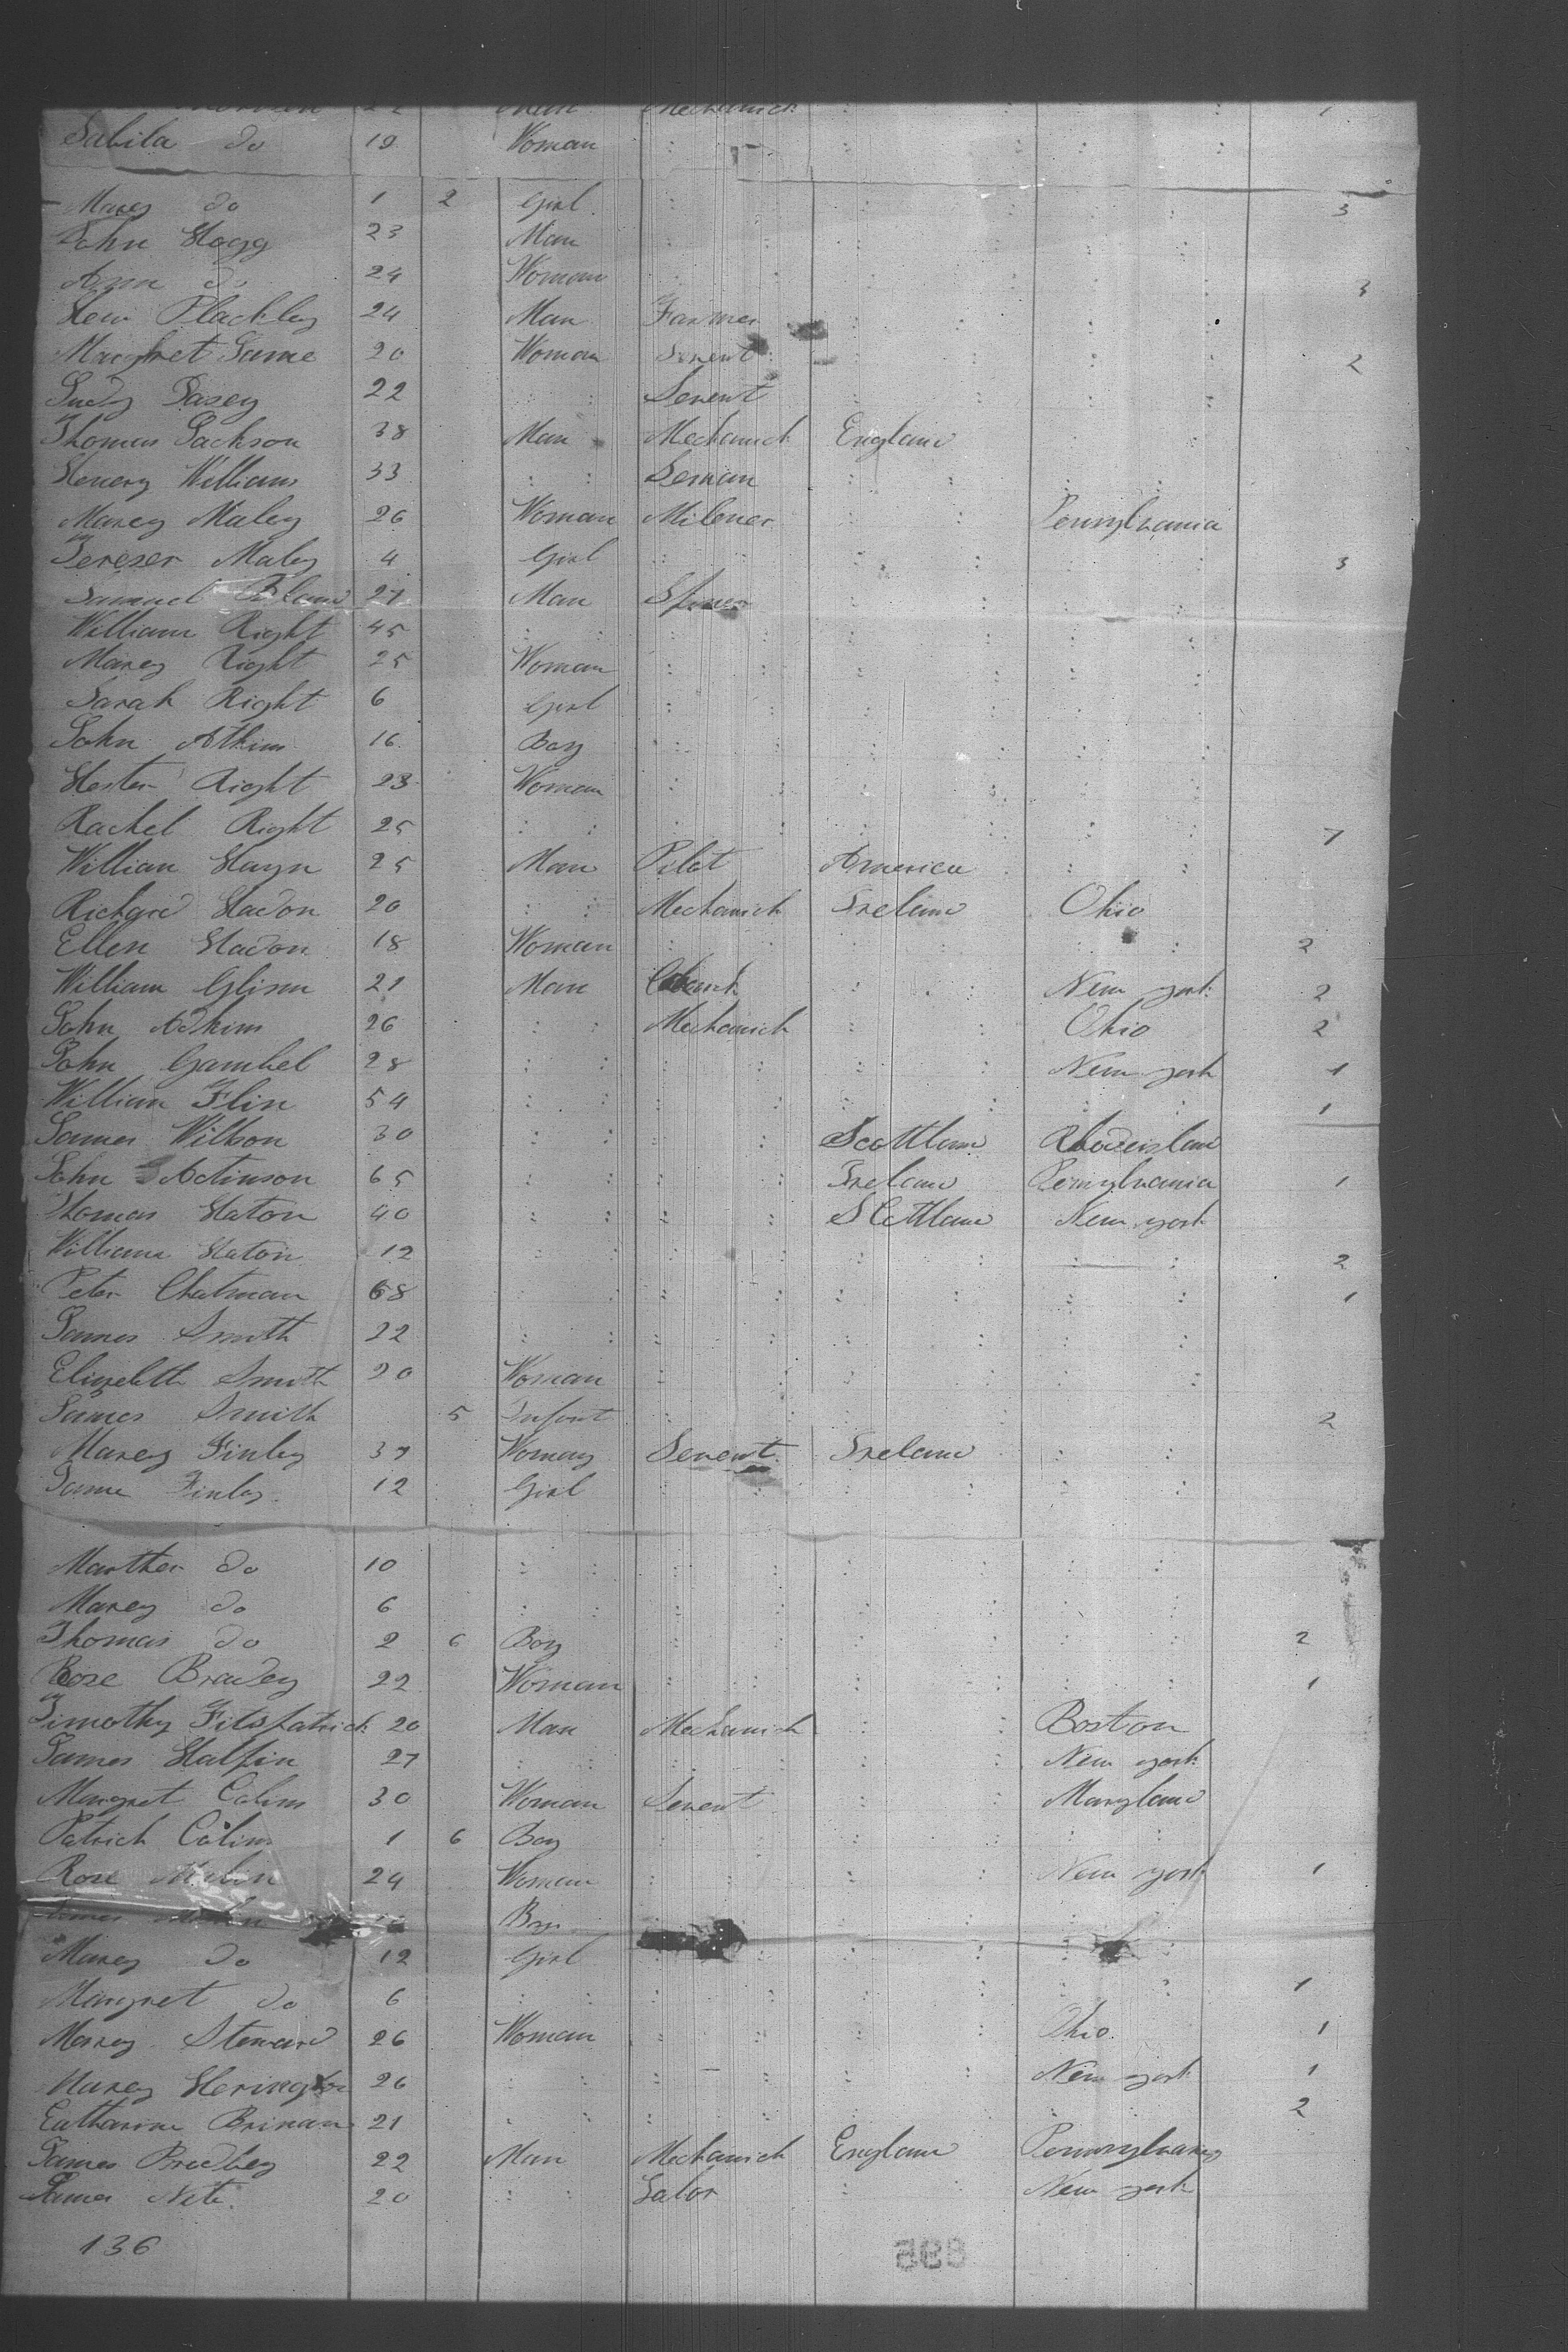 22 Man Mechanick
Sabila do 19 Woman
Marey do 1 2 Girl 3
John Hogg 23 Man
Ann do 24 Woman 3
Hew Plachley 24 Man Farmer
Margret Jame 20 Woman Servent 2
Judy Casey 22 Servent
Thomas Jackson 38 Man Mechanick England
Henery Williams 33 Seman
Marey Maley 26 Woman Milener Pennsylvania
Tereser Maley 4 Girl 3
Samuel Bland 27 Man Spiner
William Right 45
Marey Right 25 Woman
Sarah Right 6 Girl
John Atkins 16 Boy
Hester Right 23 Woman
Rachel Right 25 7
William Hayn 25 Man Pilot America
Richard Hadon 20 Mechanick Ireland Ohio
Ellen Hadon 18 Woman 2
William Glinn 21 Man New york 2
John Adkins 26 Mechanick Ohio 2
John Gambel 28 New york 1
William Flin 54 1
James Willson 30 Scottland Rhodeisland
John Actinson 65 Ireland Pennsylvania 1
Thomas Haton 40 Scottland New york
William Haton 12 2
Peter Chatman 68 1
James Smith 22
Elizebeth Smith 20 Woman
James Smith 5 Infont 2
Marey Finley 37 Woman Servent Ireland
Jame Finley 12 Girl
Marther do 10
Marey do 6
Thomas do 2 6 Boy 2
Rose Bradey 22 Woman 1
Timothy Fitspatrick 20 Man Mechanick Boston
James Halfin 27 New york
Margret Colins 30 Woman Servent Maryland
Patrick Colins 1 6 Boy
Rose 24 Woman New york 1
Boy
Marey do 12 Girl
Margret do 6 1
Marey Steward 26 Woman Ohio 1
Marey Herington 26 New york 1
Catharine Brinan 21 2
James Bradley 22 Man Mechanick England Pennsylvaney
James Nete 20 Salor New york
136